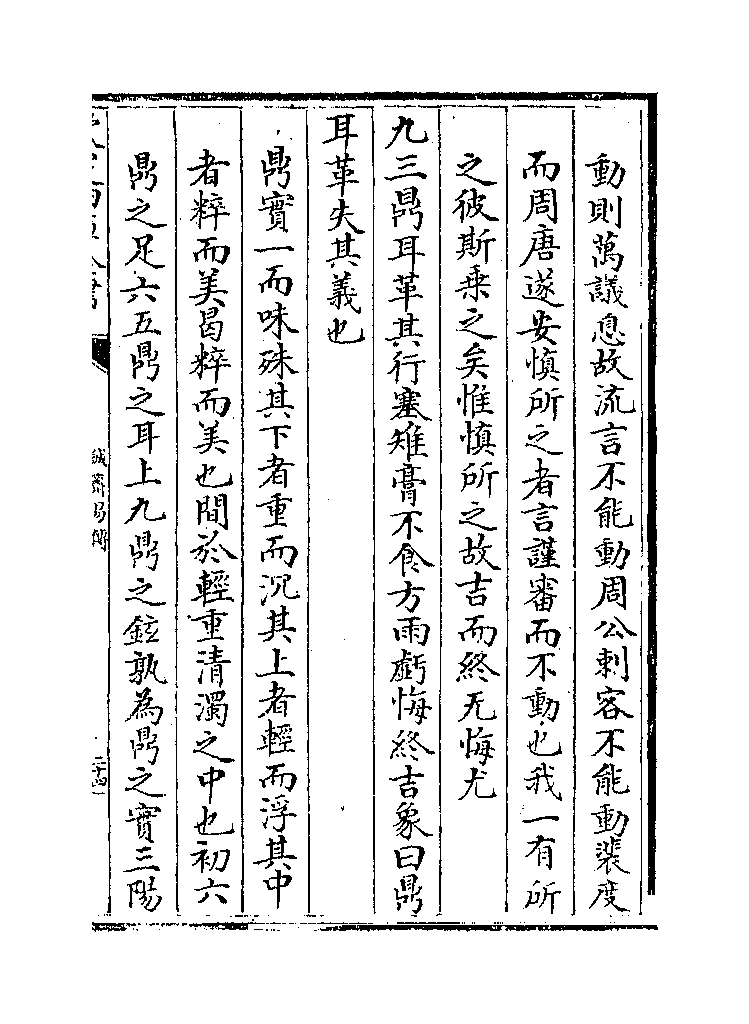 動則萬議息故流言不能動周公刺客不能動裴度
而周唐遂安慎所之者言謹審而不動也我一有所
之彼斯乗之矣惟慎所之故吉而終无悔尤
九三鼎耳革其行塞雉膏不食方雨虧悔終吉象曰鼎
耳革失其義也
鼎實一而味殊其下者重而沉其上者輕而浮其中
者粹而美曷粹而美也間於輕重清濁之中也初六
鼎之足六五鼎之耳上九鼎之鉉孰為鼎之實三陽
誠齋易傳
二十四